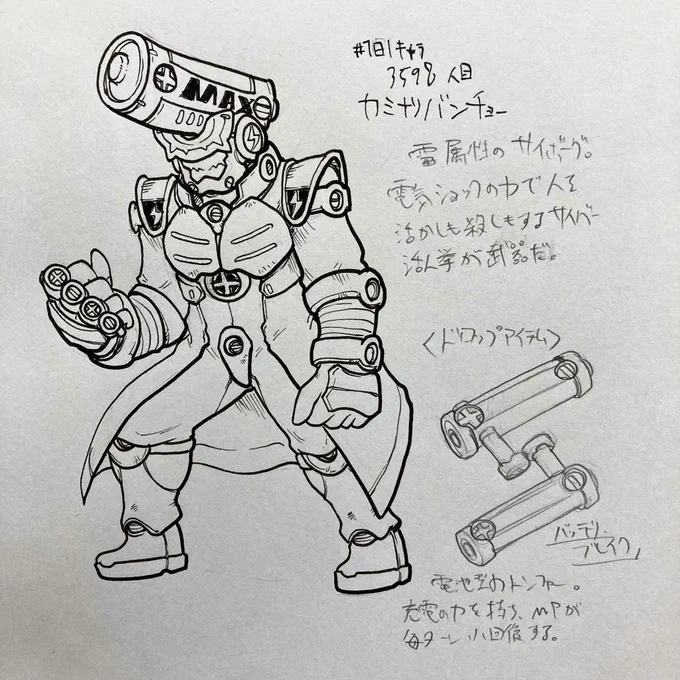 #1日1キャラ
3598人目
カミナリバンチョー
雷属性のサイボーグ。
電気ショックの力で人を
活かしも殺しもするサイバー
活人拳が武器だ。
MAX
<ドロップアイテム>
バッテリー
ブレイク
電池型のトンファー。
充電の力を持ち、MPが
毎ターン小回復する。